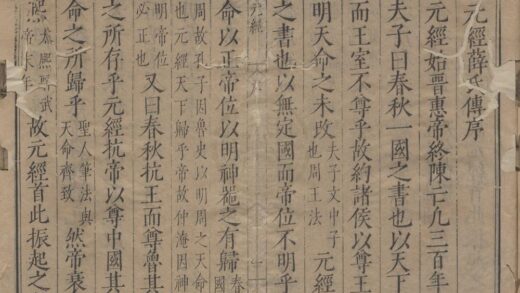 元經薛氏傳序
元經始晉惠帝終陳亡凡三百年
夫子曰春秋一國之書也以天下
而王室不尊乎故約諸侯以尊王
明天命之未改
夫子文中子
也周王法
元經
之書也以無定國而帝位不明乎
元經
命以正帝位以明神器之有歸
春
國
周故孔子因魯史以明周之天命
也元經天下歸乎帝故仲淹因神
明帝位
必正也
又曰春秋抗王而尊魯其
之所存乎元經抗帝以尊中國其
命之所歸乎
聖人筆法與
天命齊致
然帝衰
熙
武
帝末年
故元經首此振起之